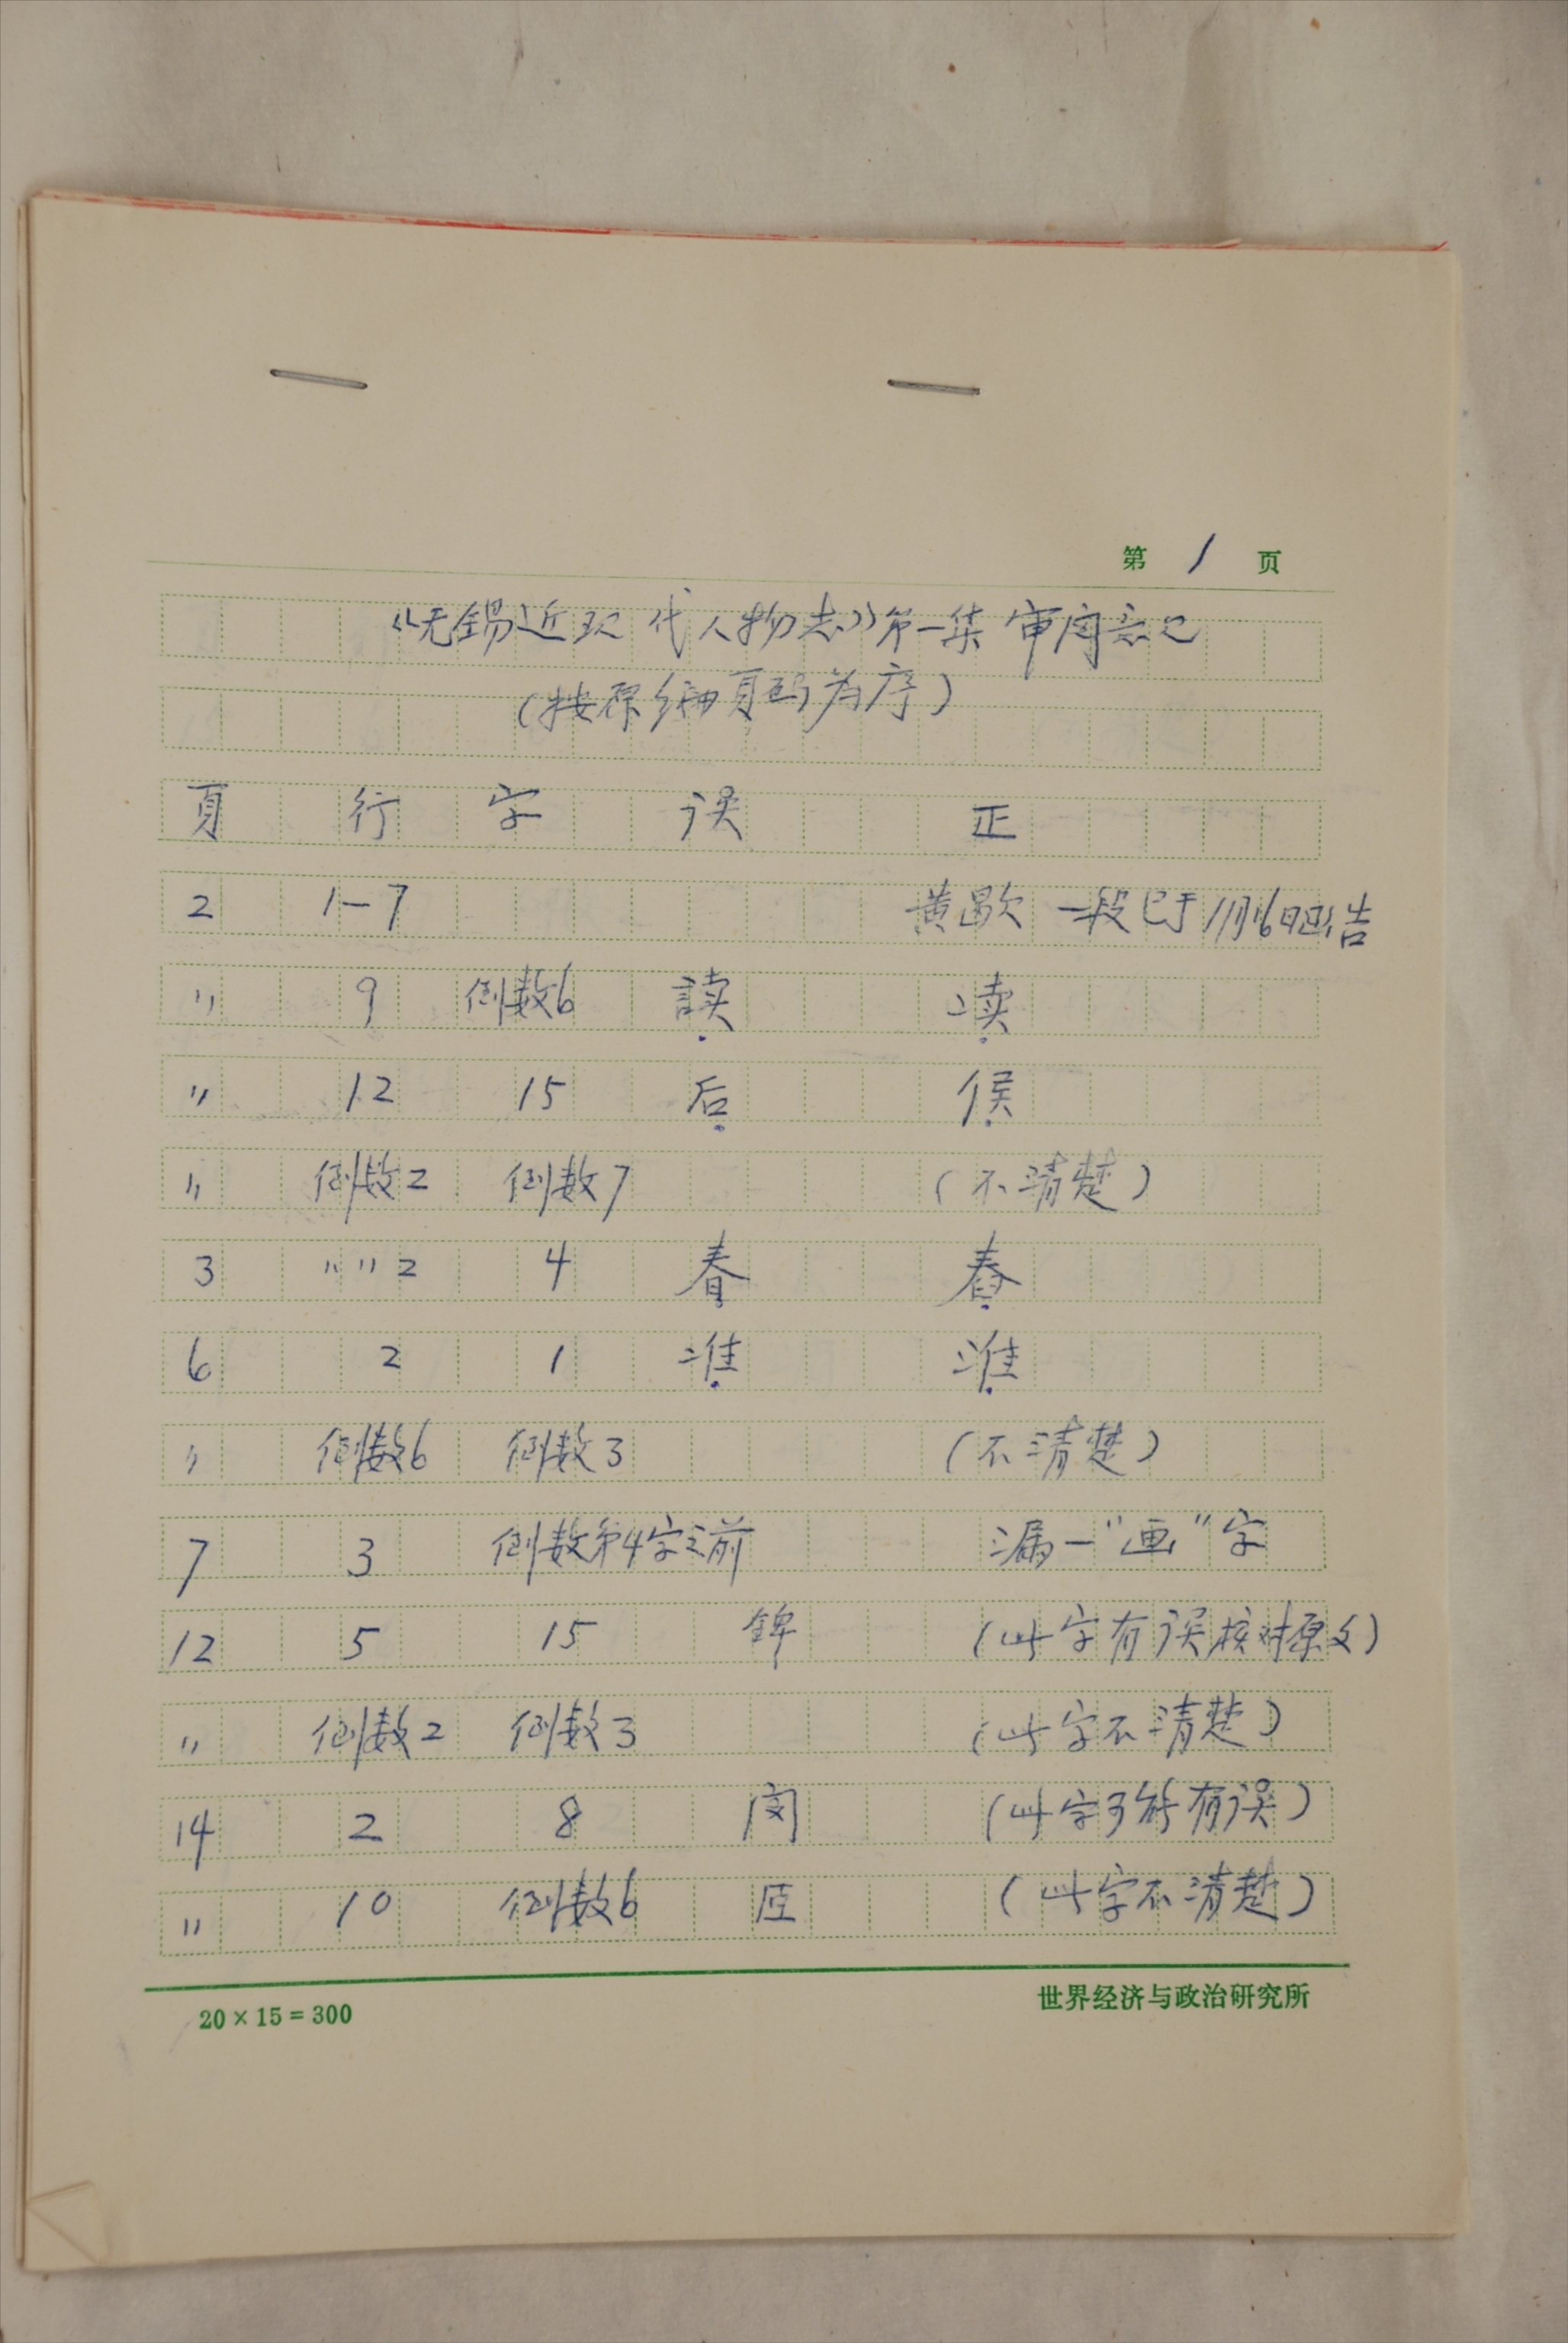 第 1 页
《无锡近现代人物志》第一集 审阅意见
(按原编頁码为序)
頁 行 字 误 正
2 1—7 黄 一段已于1月16日函告
〃 9 倒数6 読 渎
〃 12 15 后 侯
〃 倒数2 倒数7 (不清楚)
3 〃〃2 4 春 舂
6 2 1 准 淮
〃 倒数6 倒数3 (不清楚)
7 3 倒数第4字之前 漏一"画"字
12 5 15 (此字有误核对原文)
〃 倒数2 倒数3 (此字不清楚)
14 2 8 闵 (此字可能有误)
〃 10 倒数6 (此字不清楚)
20×15=300 世界经济与政治研究所